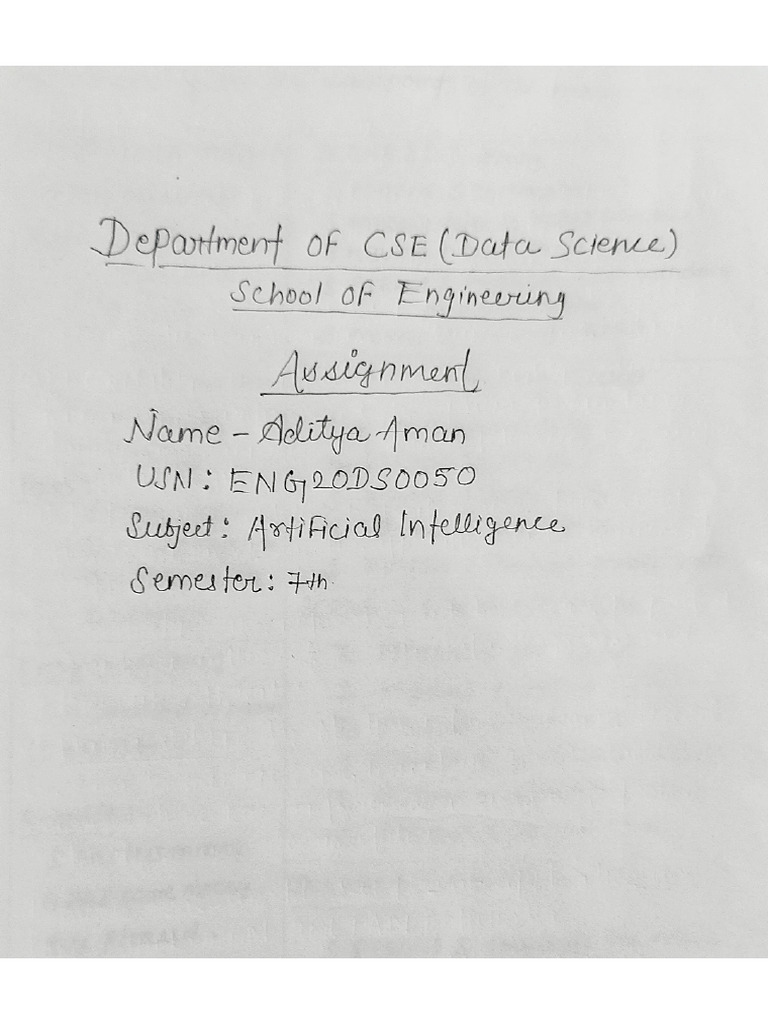 Department of CSE (Data Science)
School of Engineering
Assignment
Name - Aditya Aman
USN: ENG20DS0050
Subject: Artificial Intelligence
Semester: 7th